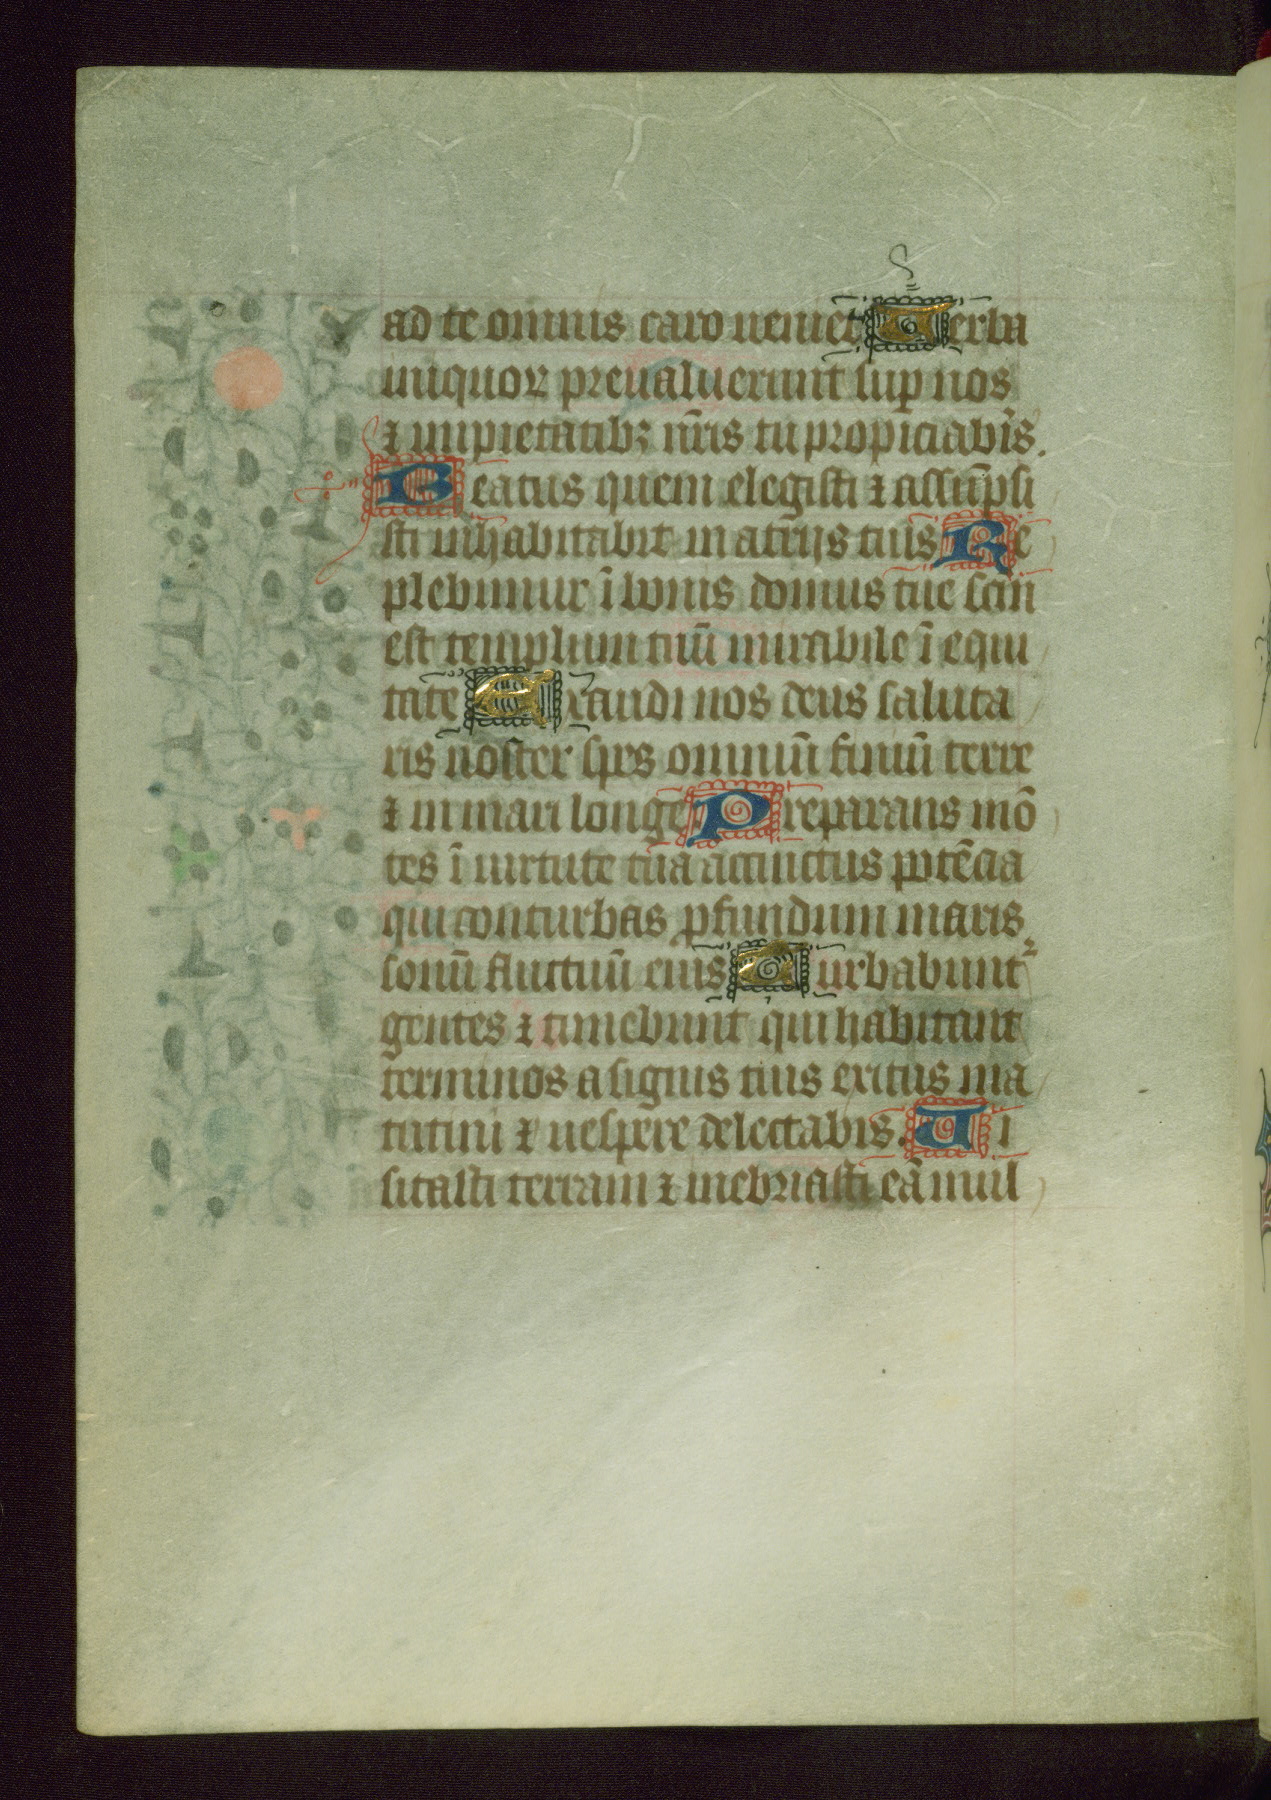 ad te omnis caro veniet Verba
iniquoꝝ prevaluerunt suꝑ nos
⁊ impietatibꝫ nr̄is tu propiciab'is.
Beatus quem elegisti ⁊ assūpsi
sti inhabitabit in atrijs tuis Re
plebimur ī bonis domus tue scm̄
est templum tuū mirabile ī equi
tate Exaudi nos deus saluta
ris noster spes omniū finiū terre
⁊ in mari longe Preparans mō
tes ī virtute tua accinctus potēcia
qui conturbas ꝓfundum maris
sonū fluctuū eius Turbabunt᷑
gentes ⁊ timebunt qui habitant
terminos a signis tuis exitus ma
tutini ⁊ vespere delectabis. Vi
sitasti terram ⁊ inebriasti eā mul